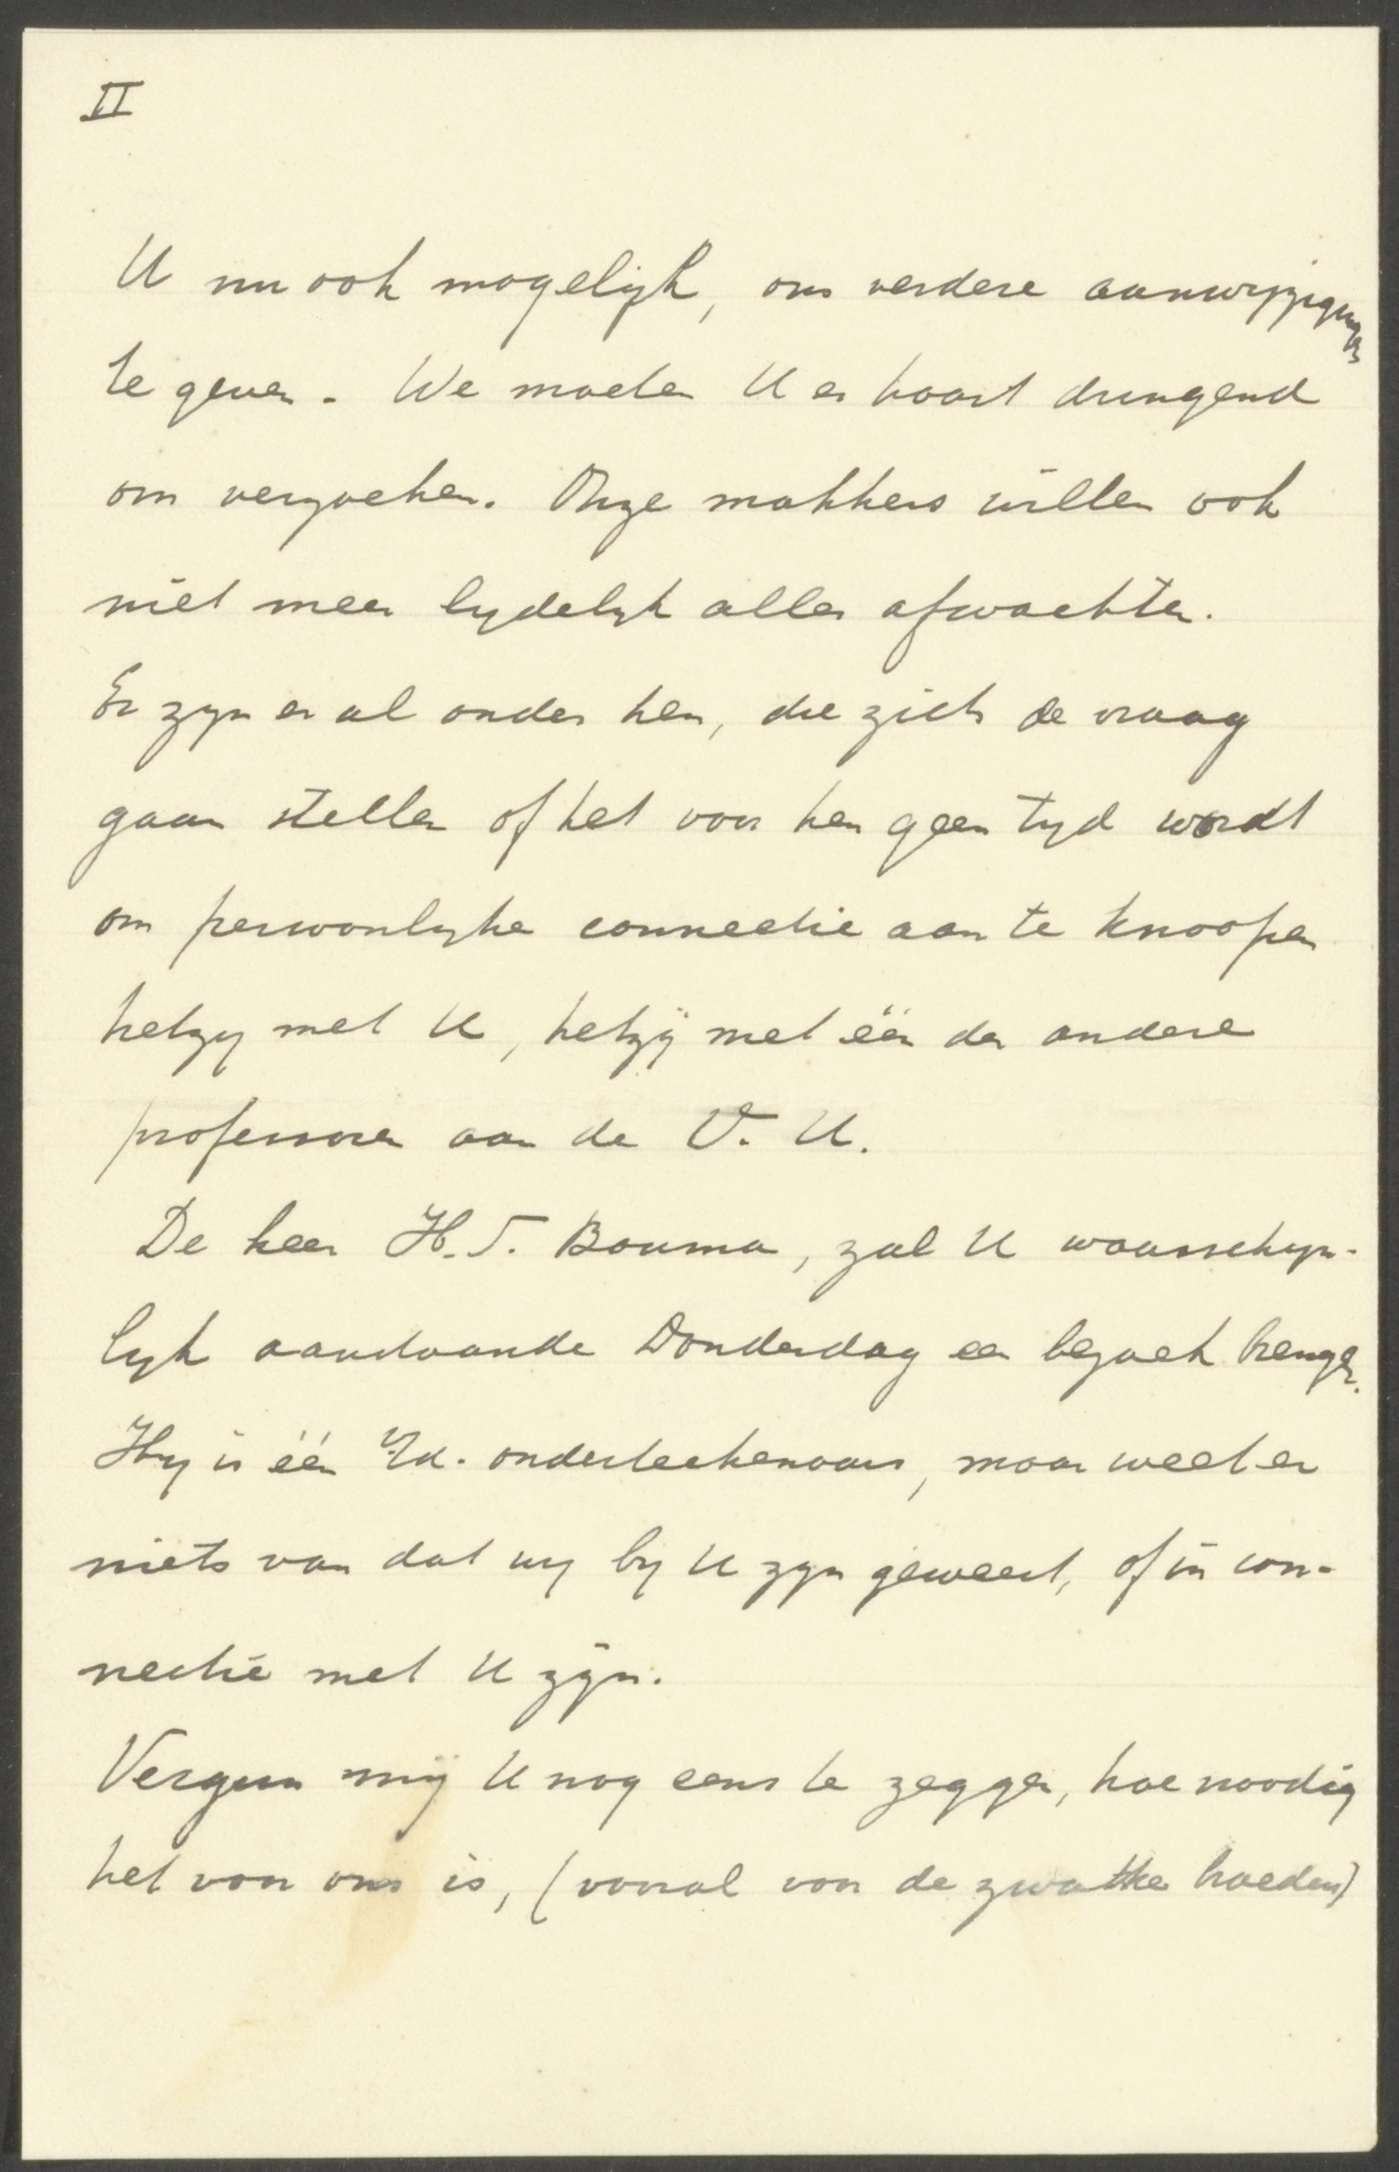 II
U nu ook mogelijk, ons verdere aanwijzigingen
te geven. We moeten U er haast dringend
om verzoeken. Onze makkers willen ook
niet meer lydelyk alles afwachten.
Er zyn er al onder hen, die zich de vraag
gaan stellen of het voor hen geen tyd wordt
om persoonlyke connectie aan te knoopen
hetzy met U, hetzij met één der andere
professoren aan de V. U.
De heer H. T. Bouma, zal U waarschyn-
lyk aanstaande Donderdag een bezoek brengen.
Hy is één onderteekenaars, maar weet er
niets van dat wy by U zyn geweest, of in con-
nectie met U zijn.
Vergun mij U nog eens te zeggen, hoe noodig
het voor ons is, (vooral voor de zwakke broeders)